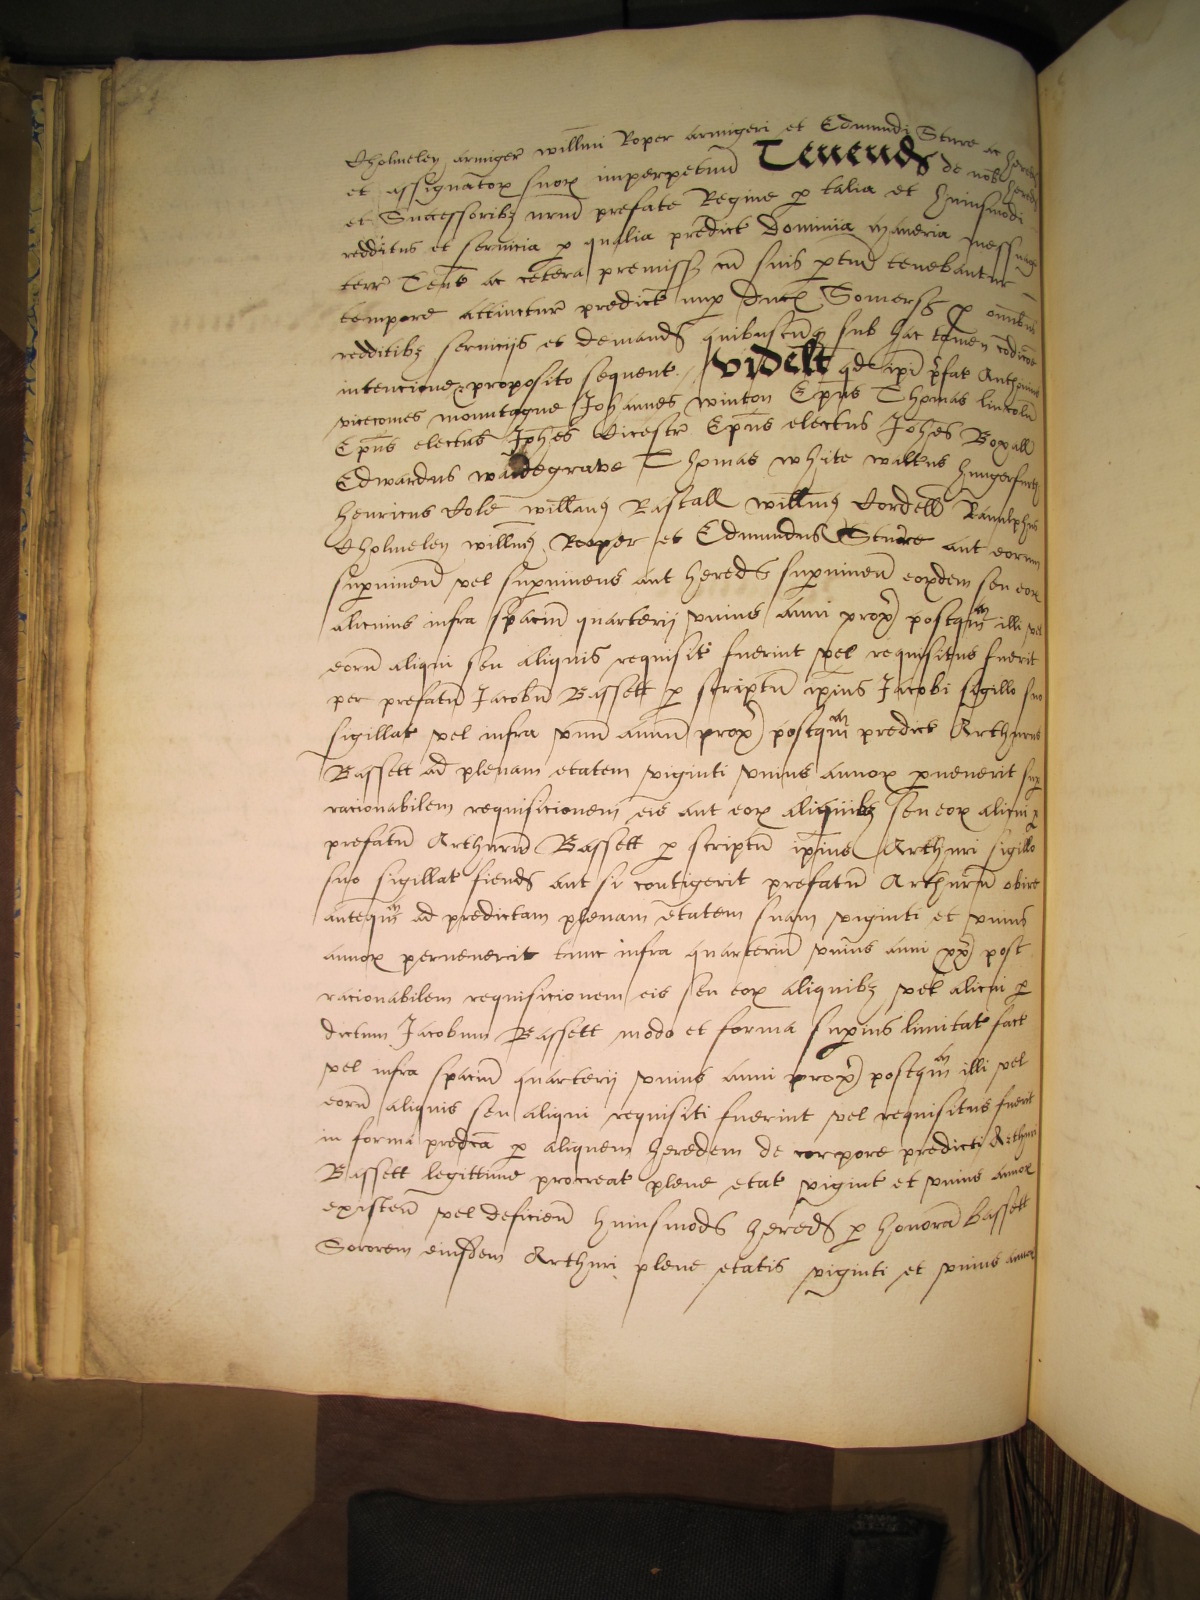 Cholmeley armiger willmi Roper armigeri et Edmundi Sture ac hered
et assignator suor imperpetuu Tenend de nob hered
et Successoribz nrm prefate Regine p talia et huiusmodi
redditus et seruicia p qualia predict Dominia Maneria messuag
terr Tent ac cetera premiss cu suis ptin tenebantur
tempore attincture predict nup Duc Somers p omibus
redditibz seruicijs et demand quibuscuq sub hac tamen condicoe
intencione proposito sequent videlt qd ipi pfat Antonius
vicecomes mountague Johannes winton Epus Thomas lincoln
Epus electus Johes Cicestr Epus electus Johes Boxall
Edwardus waldegrave Thomas white walterus hungerford
henricus Cole willmus Rastall willmus Cordell Ranulphus
Cholmeley willmus Rooper et Edmundus Sture aut eorum
superuiuen vel superuiuens aut hered superuiuen eordem seu eor
alicuius infra spaciu quarterij vnius anni prox postqm illi vel
eoru aliqui seu aliquis requisit fuerint vel requisitus fuerit
per prefatu Jacobu Bassett p scriptu ipius Jacobi sigillo suo
sigillat vel infra vnu annu prox postqm predict Arthurus
Bassett ad plenam etatem viginti vnius annor puenerit sup
racionabilem requisicionem eis aut eor aliquibz seu eor alicui p
prefatu Arthuru Bassett p scriptu ipius Arthuri sigillo
suo sigillat fiend aut si contigerit prefatu Arthuru obire
anteqm ad predictam plenam etatem suam viginti et vnius
annor peruenerit tunc infra quarteriu vnius anni px post
racionabilem requisicionem eis seu eor aliquibz vel alicui p
dictum Jacobum Bassett modo et forma superius limitat fact
vel infra spaciu quarterij vnius anni prox postqm illi vel
eoru aliquis seu aliqui requisiti fuerint vel requisitus fuerit
in forma predca p aliquem heredem de corpore predicti Arthuri
Bassett legittime procreat plene etat vigint et vnius annor
existen vel deficien huiusmod hered p honora Bassett
Sororem eiusdem Arthuri plene etatis viginti et vnius annor